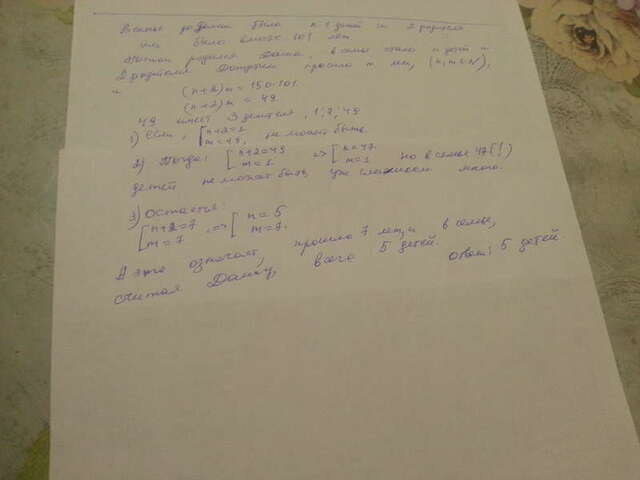 В семье до Даши было n-1 детей и 2 родителя
им было вместе 101 лет
Потом родилась Даша, в семье стало n детей и
2 родителя. Допустим прошло m лет, (n, m ∈ N),
и
(n+2)m = 150-101
(n+2)m = 49
49 имеет 3 делителя, 1; 7; 49
1) Если, [n+2=1
m=49, не может быть.
2) Тогда: [n+2=49
m=1 => [n=47
m=1 но в семье 47(!)
детей не может быть, уж слишком много.
3) Остаётся:
[n+2=7
m=7 => [n=5
m=7.
А это означает, прошло 7 лет, и в семье,
считая Дашу, всего 5 детей. Ответ: 5 детей.